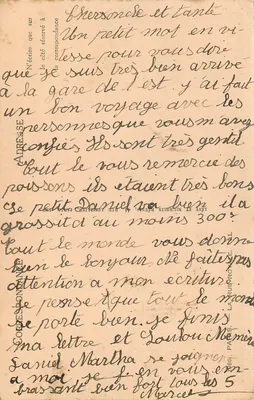 Cher oncle et tante
Un petit mot en vi-
tesse pour vous dire
que je suis très bien arrivé
à la gare de l'est. y ai fait
un bon voyage avec les
personnes que vous m'avez
confiés Ils sont très gentil
tout le vous remercie des
poissons ils étaient très bons
le petit Daniel va bien il a
grossit d'au moins 300gr
tout le monde vous donne
bien le bonjour ne faites pas
attention a mon écriture.
Je pense que tout le monde
se porte bien. je finis
ma lettre et Loulou Mémère
Daniel Martha se joignent
a moi je fin vous em-
brassant bien fort tous les 5
Marcel
CORRESPONDANCE
ADRESSE
N'écrire que sur
le côté réservé à
la correspondance